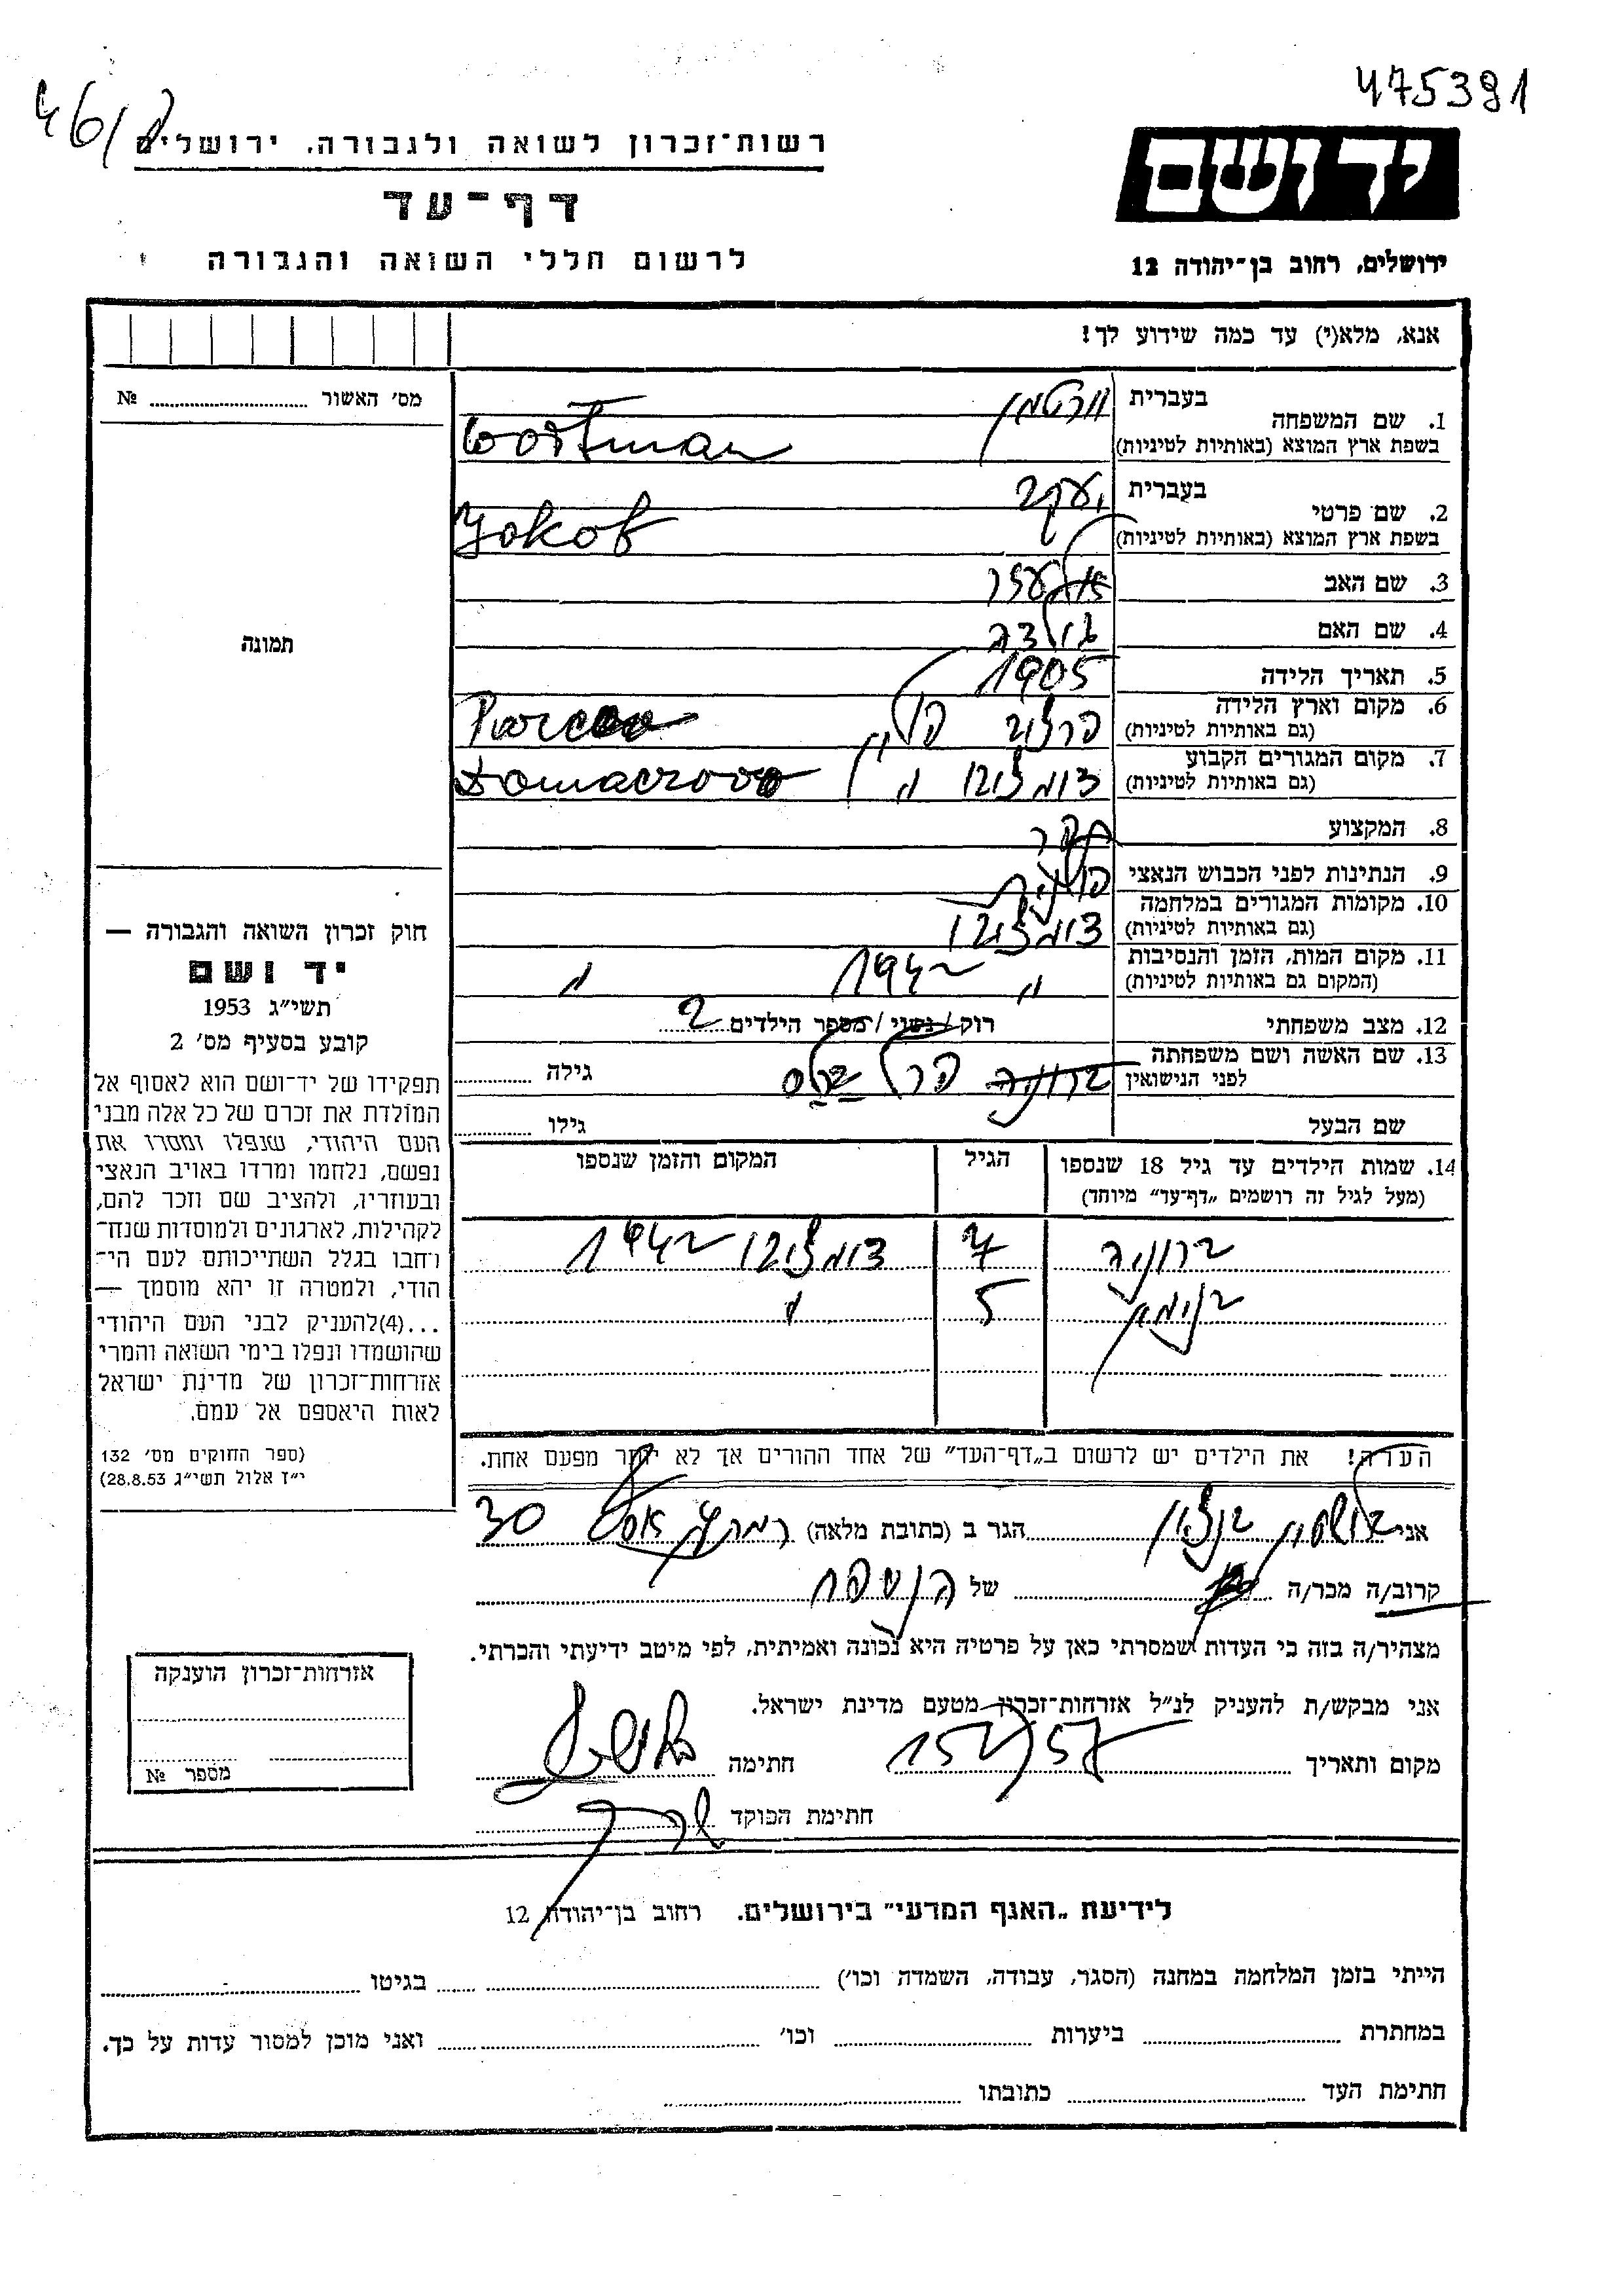 475391
46/
רשות־זכרון לשואה ולגבורה, ירושלים
יד ושם
דף־עד
לרשום חללי השואה והגבורה
ירושלים, רחוב בן־יהודה 12
אנא, מלא(י) עד כמה שידוע לך!
מס׳ האשור № ........
1. שם המשפחה בעברית וורטמן
בשפת ארץ המוצא (באותיות לטיניות) Wortman
2. שם פרטי בעברית יעקב
בשפת ארץ המוצא (באותיות לטיניות) Jakob
3. שם האב
4. שם האם
5. תאריך הלידה 1905
6. מקום וארץ הלידה
(גם באותיות לטיניות) פרצוב פולין
7. מקום המגורים הקבוע
(גם באותיות לטיניות) דומצ׳ובו
8. המקצוע
9. הנתינות לפני הכבוש הנאצי פולנית
10. מקומות המגורים במלחמה
(גם באותיות לטיניות) דומצ׳ובו
11. מקום המות, הזמן והנסיבות
(המקום גם באותיות לטיניות) " 1942 "
12. מצב משפחתי רוק / נשוי / מספר הילדים 2
13. שם האשה ושם משפחתה
לפני הנישואין גילה ........
שם הבעל גילו ........
14. שמות הילדים עד גיל 18 שנספו הגיל המקום והזמן שנספו
(מעל לגיל זה רושמים „דף־עד״ מיוחד)
7 דומצ׳ובו 1942
5 "
הערה! את הילדים יש לרשום ב„דף־העד״ של אחד ההורים אך לא יותר מפעם אחת.
אני הגר ב (כתובת מלאה) 30
קרוב/ה מכר/ה של הנספה
מצהיר/ה בזה כי העדות שמסרתי כאן על פרטיה היא נכונה ואמיתית, לפי מיטב ידיעתי והכרתי.
אני מבקש/ת להעניק לנ״ל אזרחות־זכרון מטעם מדינת ישראל.
מקום ותאריך חתימה
חתימת הפוקד
תמונה
חוק זכרון השואה והגבורה —
יד ושם
תשי״ג 1953
קובע בסעיף מס׳ 2
תפקידו של יד־ושם הוא לאסוף אל
המולדת את זכרם של כל אלה מבני
העם היהודי, שנפלו ומסרו את
נפשם, נלחמו ומרדו באויב הנאצי
ובעוזריו, ולהציב שם וזכר להם,
לקהילות, לארגונים ולמוסדות שנח־
רחבו בגלל השתייכותם לעם הי־
הודי, ולמטרה זו יהא מוסמך —
...(4)להעניק לבני העם היהודי
שהושמדו ונפלו בימי השואה והמרי
אזרחות־זכרון של מדינת ישראל
לאות היאספם אל עמם.
(ספר החוקים מס׳ 132
י״ז אלול תשי״ג 28.8.53)
אזרחות־זכרון הוענקה
מספר №
לידיעת „האגף המדעי״ בירושלים. רחוב בן־יהודה 12
הייתי בזמן המלחמה במחנה (הסגר, עבודה, השמדה וכו׳) ........ בגיטו ........
במחתרת ........ ביערות ........ וכו׳ ........ ואני מוכן למסור עדות על כך.
חתימת העד ........ כתובתו ........